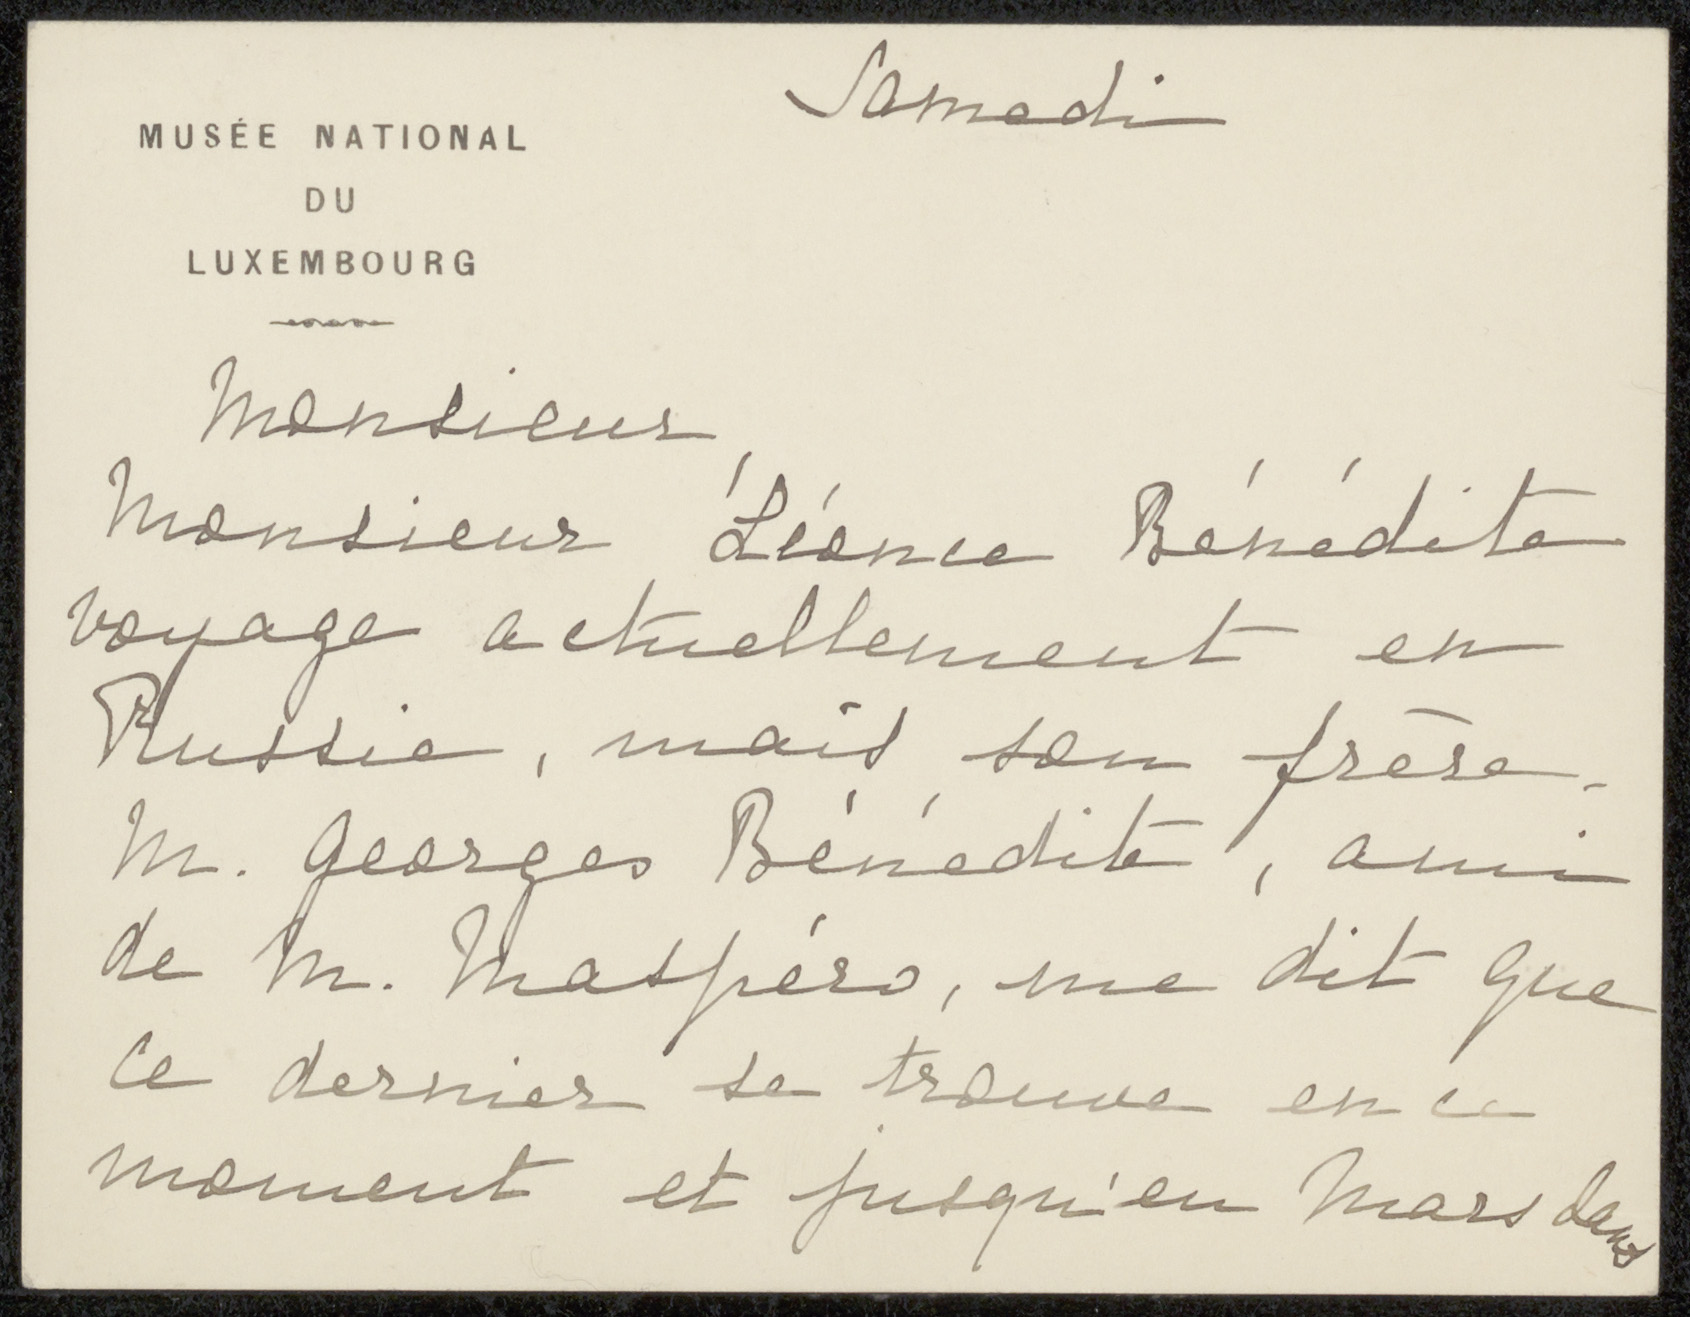 Samedi
MUSÉE NATIONAL
DU
LUXEMBOURG
Monsieur,
Monsieur Léonce Bénédite
voyage actuellement en
Russie, mais son frère.
M. Georges Bénédite, ami
de M. Maspéro, me dit que
ce dernier se trouve en ce
moment et jusqu'en Mars dans